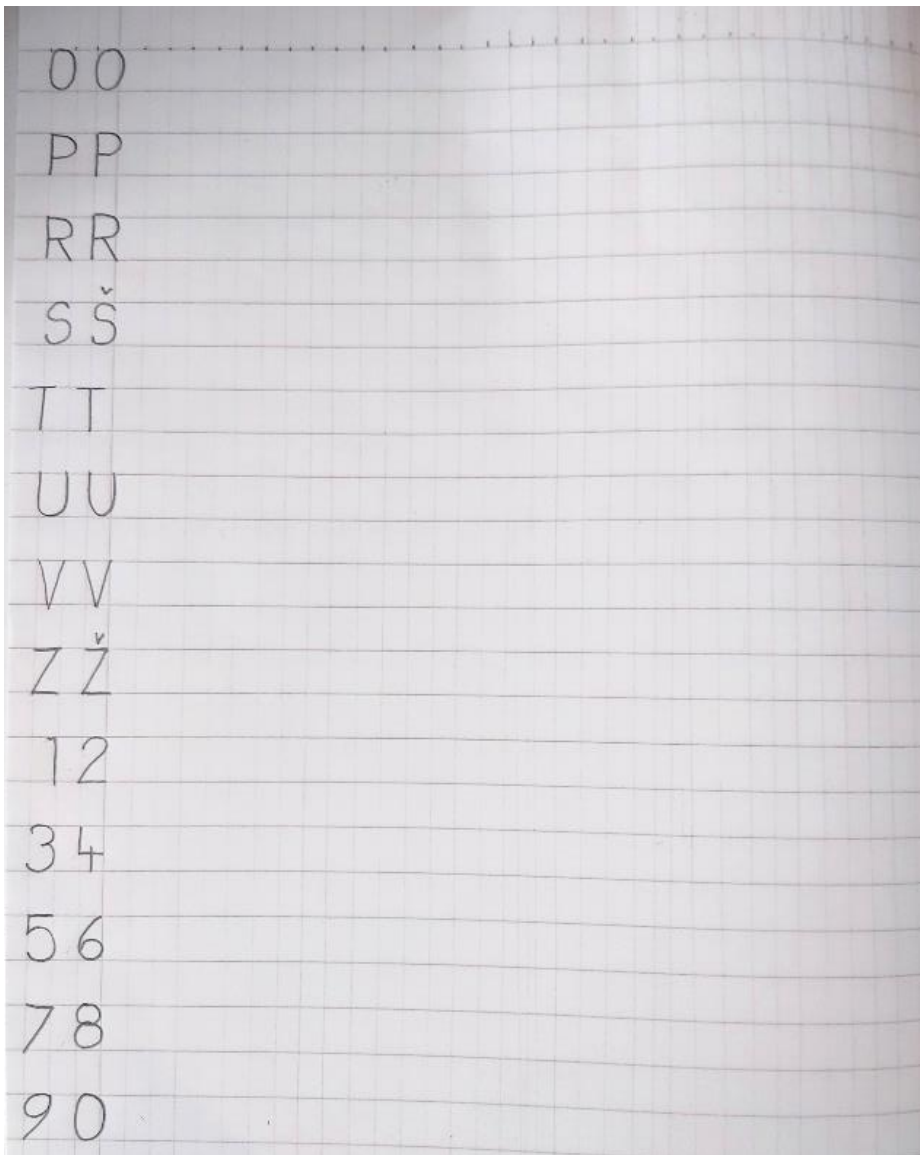 O O
P P
R R
S Š
T T
U U
V V
Z Ž
1 2
3 4
5 6
7 8
9 0